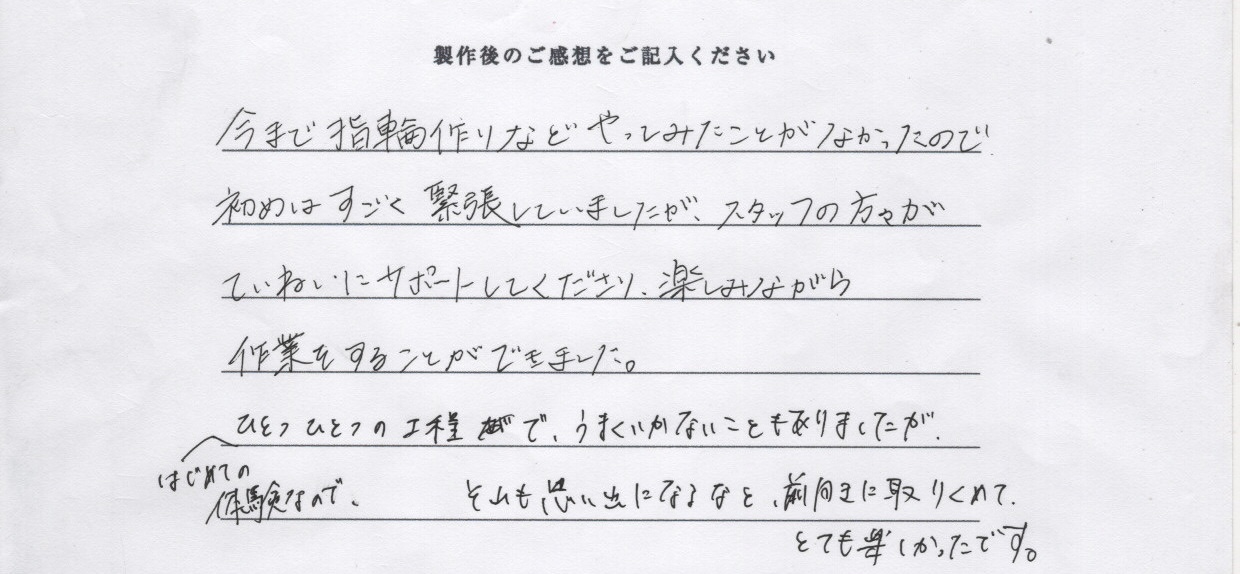 製作後のご感想をご記入ください
今まで指輪作りなどやってみたことがなかったので
初めはすごく緊張していましたが、スタッフの方々が
ていねいにサポートしてくださり、楽しみながら
作業をすることができました。
ひとつひとつの工程で、うまくいかないこともありましたが、
はじめての
体験なので、 それも思い出になるなと、前向きに取りくめて、
とても楽しかったです。